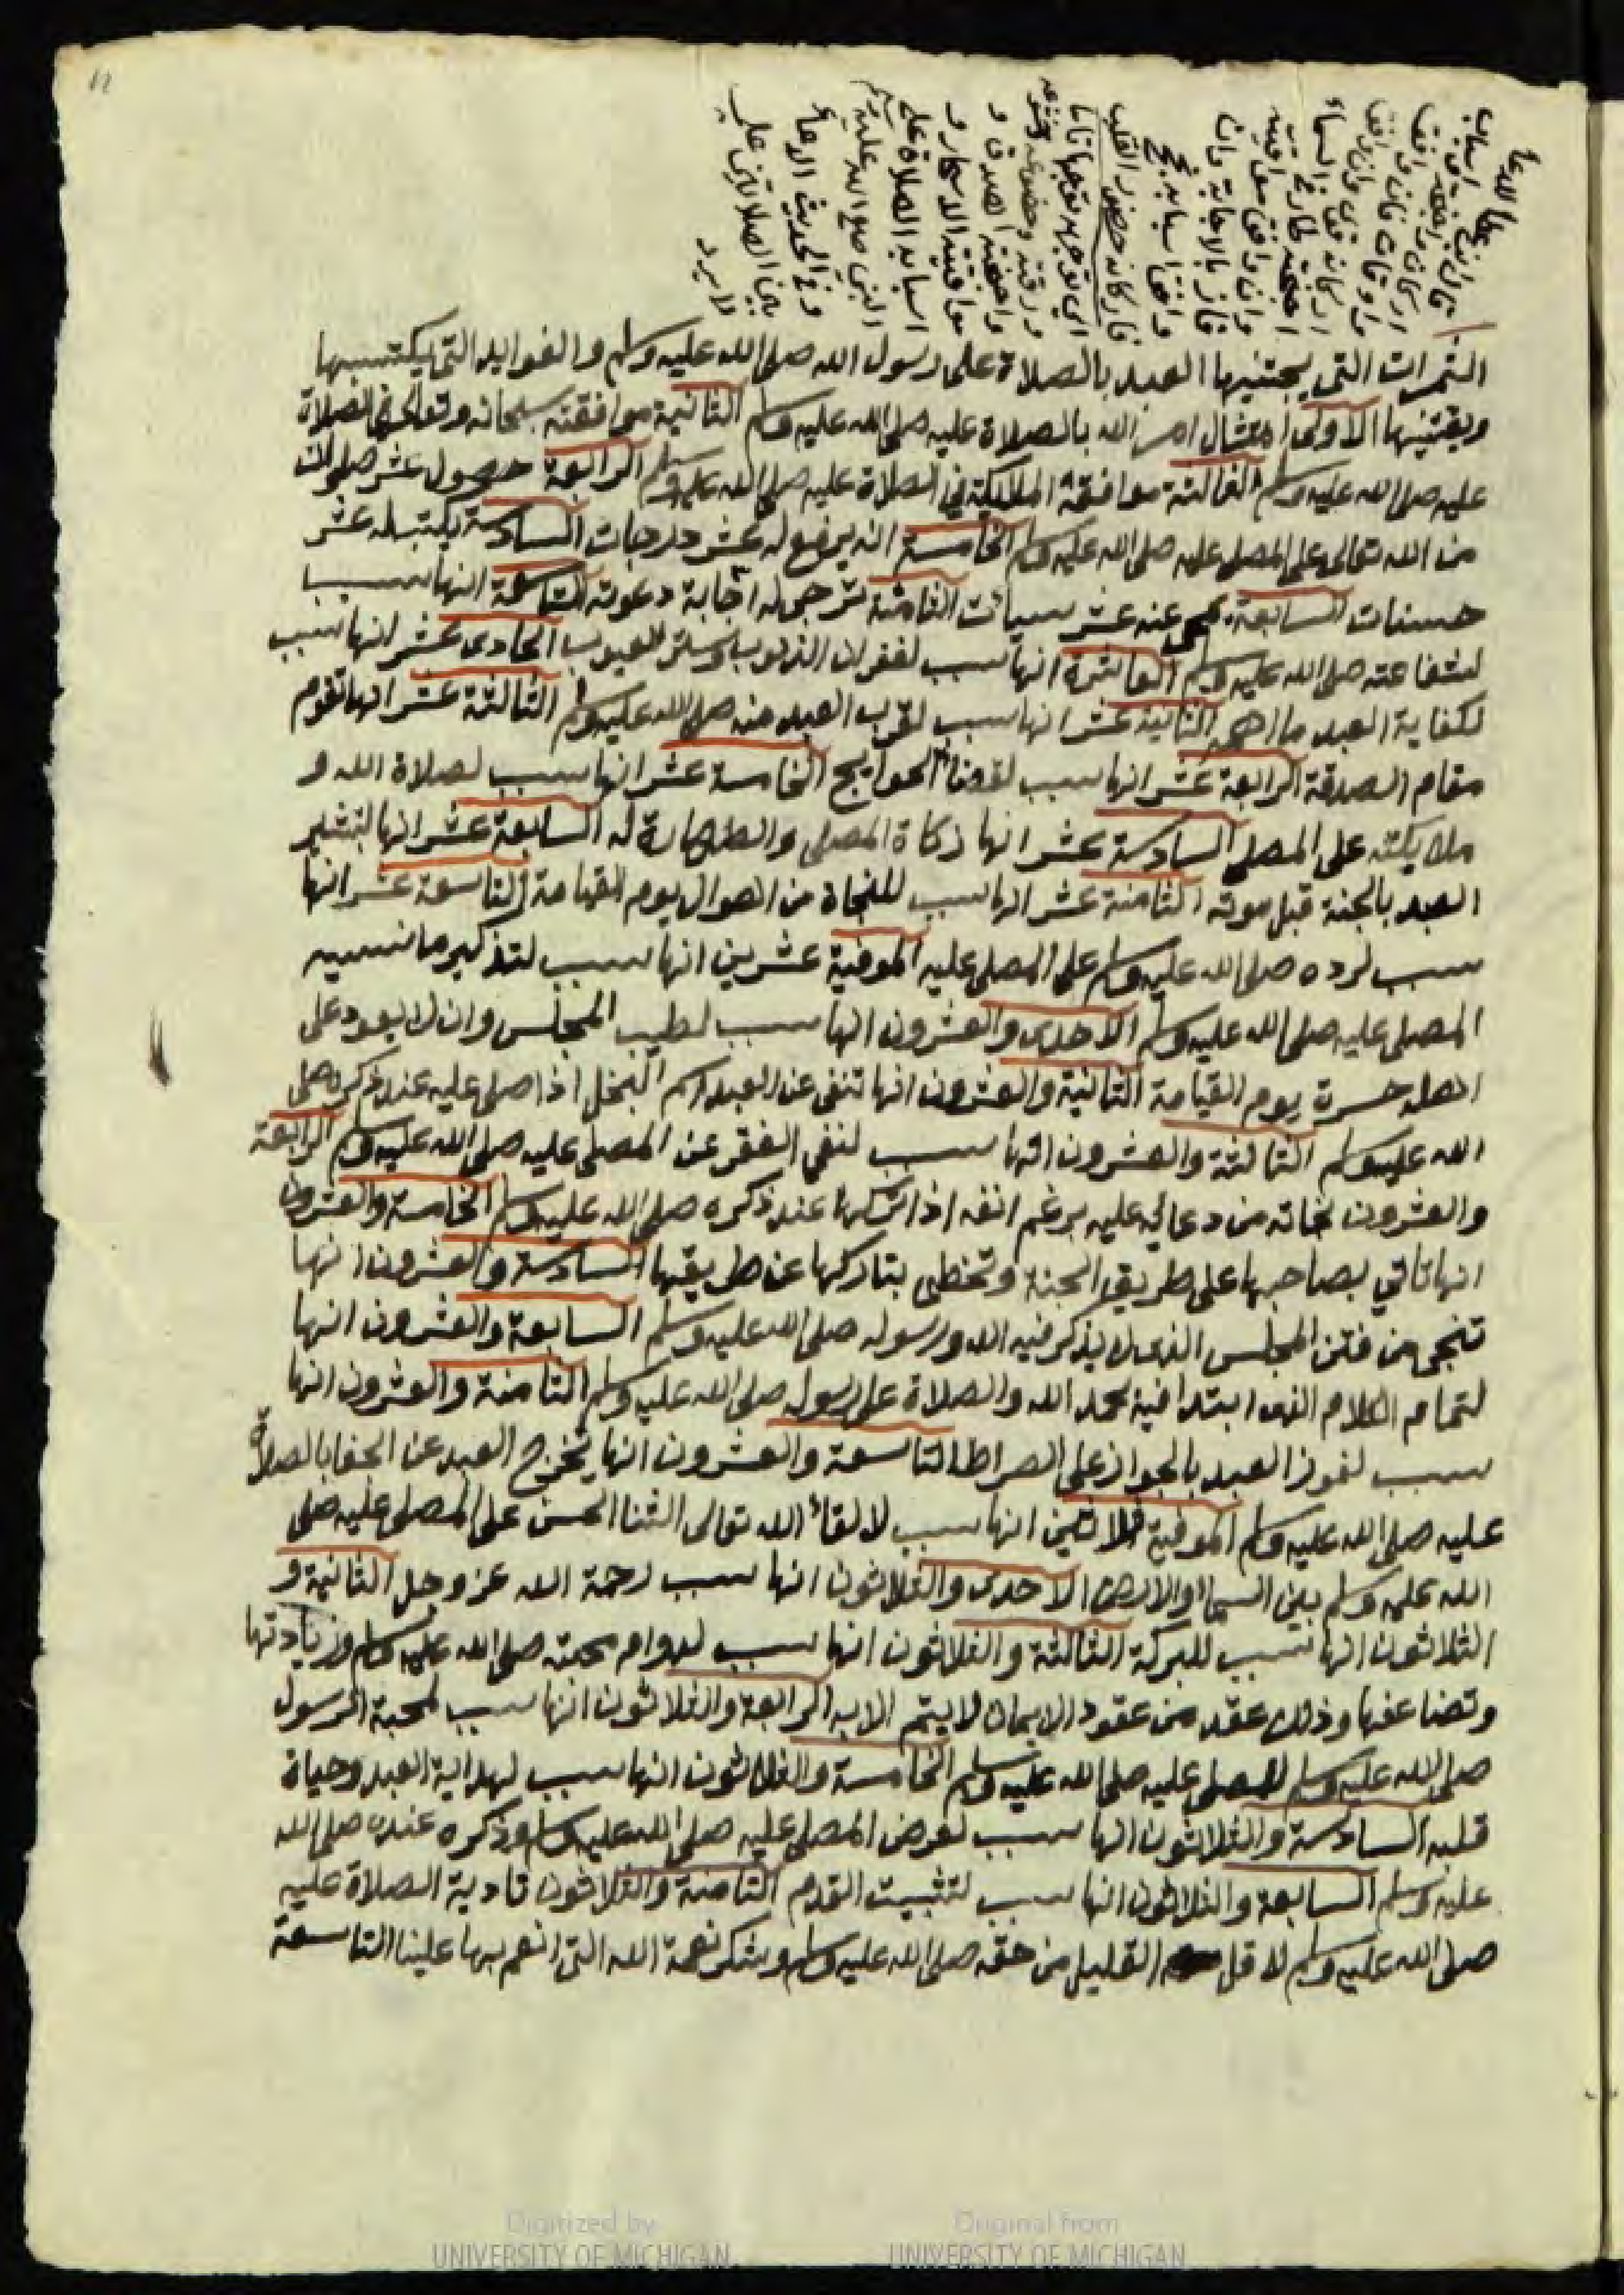 عطا للدعا
اركان واجنحة واسباب
واوقات فان وافق
اركانه قوي وان وافق
اجنحته طار في السماء
وان وافق مواقيته
فاز بالاجابة وان
وافق اسبابه نجح
فاركانه حضور القلب
ورقته وخضوعه وخشوعه
واجنحته الصدق و
مواقيته الاسحار و
اسبابه الصلاة على
النبي صلى الله عليه وسلم
وفي الحديث الدعاء
بين الصلاتين علي
لا يرد
الثمرات التي يجتنيها العبد بالصلاة على رسول الله صلى الله عليه وسلم والفوايد التي يكتسبها
ويقتنيها الاولى امتثال امر الله بالصلاة عليه صلى الله عليه وسلم الثانية موافقته سبحانه وتعالى في الصلاة
عليه صلى الله عليه وسلم الثالثة موافقة الملايكة في الصلاة عليه صلى الله عليه وسلم الرابعة حصول عشر صلوات
من الله تعالى على المصلي عليه صلى الله عليه وسلم الخامسة انه يرفع له عشر درجات السادسة يكتب له عشر
حسنات السابعة يمحى عنه عشر سيأت الثامنة ترجى له اجابة دعوته التاسعة انها سبب
لشفاعته صلى الله عليه وسلم العاشرة انها سبب لغفران الذنوب وستر العيوب الحادي عشر انها سبب
لكفاية العبد ما اهمه الثانية عشر انها سبب لقرب العبد منه صلى الله عليه وسلم الثالثة عشر انها تقوم
مقام الصدقة الرابعة عشر انها سبب لقضا الحوايج الخامسة عشر انها سبب لصلاة الله و
ملايكته على المصلي السادسة عشر انها زكاة المصلي والطهارة له السابعة عشر انها لتبشير
العبد بالجنة قبل موته الثامنة عشر انها سبب للنجاة من اهوال يوم القيامة التاسعة عشر انها
سبب لرده صلى الله عليه وسلم على المصلي عليه الموفية عشرين انها سبب لتذكير ما نسيه
المصلي عليه صلى الله عليه وسلم الاحدى والعشرون انها سبب لطيب المجلس وان لا يعود على
اهله حسرة يوم القيامة الثانية والعشرون انها تنفي عن العبد اسم البخل اذا صلى عليه عند ذكره صلى
الله عليه وسلم الثالثة والعشرون انها سبب لنفي الفقر عن المصلي عليه صلى الله عليه وسلم الرابعة
والعشرون نجاته من دعائه عليه برغم انفه اذا تركها عند ذكره صلى الله عليه وسلم الخامسة والعشرون
انها تاتي بصاحبها على طريق الجنة وتخطي بتاركها عن طريقها السادسة والعشرون انها
تنجي من فتن المجلس الذي لا يذكر فيه الله ورسوله صلى الله عليه وسلم السابعة والعشرون انها
لتمام الكلام الذي ابتدا فيه بحمد الله والصلاة على رسوله صلى الله عليه وسلم الثامنة والعشرون انها
سبب لفوز العبد بالجواز على الصراط التاسعة والعشرون انها يخرج العبد عن الجفا بالصلاة
عليه صلى الله عليه وسلم الموفية ثلاثين انها سبب لالقاء الله تعالى الثنا الحسن على المصلي عليه صلى
الله عليه وسلم بين السما والارض الاحدى والثلاثون انها سبب رحمة الله عز وجل الثانية و
الثلاثون انها سبب للبركة الثالثة والثلاثون انها سبب لدوام محبته صلى الله عليه وسلم وزيادتها
وتضاعفها وذلك عقد من عقود الايمان لا يتم الا به الرابعة والثلاثون انها سبب لمحبة الرسول
صلى الله عليه وسلم للمصلي عليه صلى الله عليه وسلم الخامسة والثلاثون انها سبب لهداية العبد وحياة
قلبه السادسة والثلاثون انها سبب لعرض المصلي عليه صلى الله عليه وسلم وذكره عنده صلى الله
عليه وسلم السابعة والثلاثون انها سبب لتثبيت القدم الثامنة والثلاثون تادية الصلاة عليه
صلى الله عليه وسلم لاقل القليل من حقه صلى الله عليه وسلم وشكر نعمة الله التي انعم بها علينا التاسعة
Digitized by
UNIVERSITY OF MICHIGAN
Original from
UNIVERSITY OF MICHIGAN